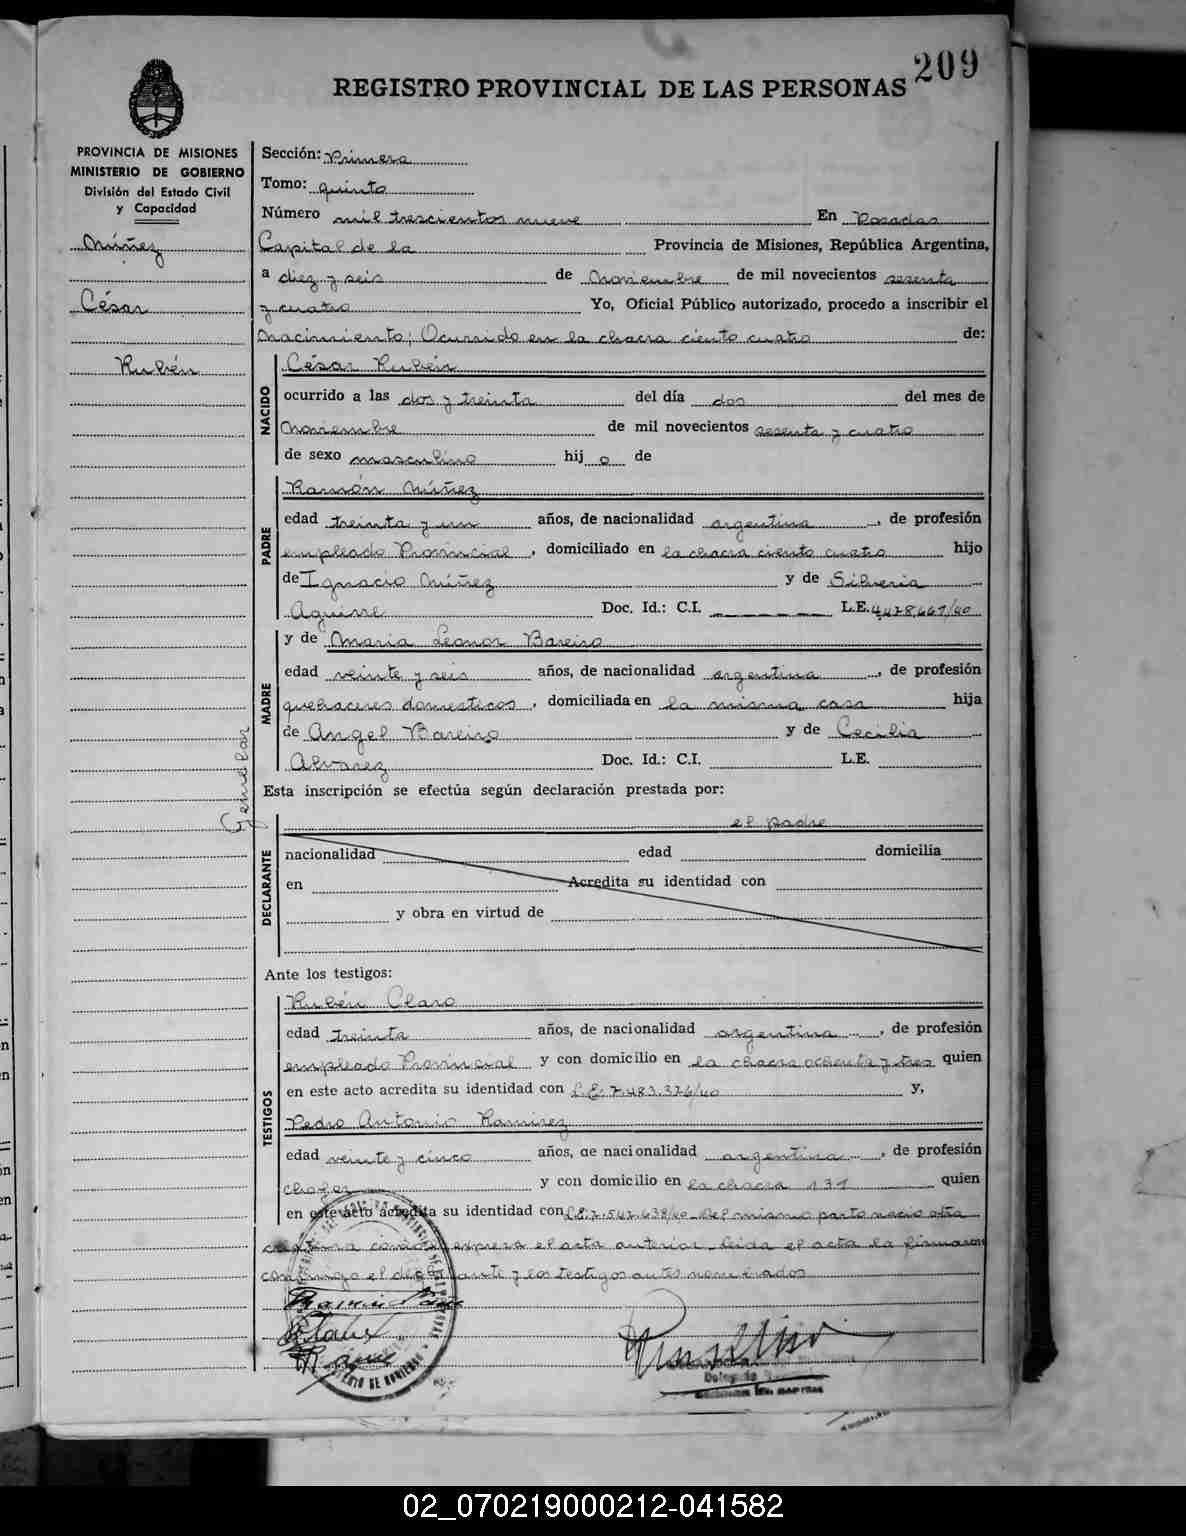 209
REGISTRO PROVINCIAL DE LAS PERSONAS
PROVINCIA DE MISIONES
MINISTERIO DE GOBIERNO
División del Estado Civil
y Capacidad
Núñez
César
Rubén
Gemelar
Sección: Primera
Tomo: quinto
Número mil trescientos nueve En Posadas
Capital de la Provincia de Misiones, República Argentina,
a diez y seis de Noviembre de mil novecientos sesenta
y cuatro Yo, Oficial Público autorizado, procedo a inscribir el
Nacimiento; Ocurrido en la chacra ciento cuatro de:
NACIDO
César Rubén
ocurrido a las dos y treinta del día dos del mes de
Noviembre de mil novecientos sesenta y cuatro
de sexo masculino hij o de
PADRE
Ramón Núñez
edad treinta y un años, de nacionalidad argentina, de profesión
empleado Provincial, domiciliado en la chacra ciento cuatro hijo
de Ignacio Núñez y de Silveria
Aguirre Doc. Id.: C.I. L.E.
MADRE
y de Maria Leonor Bareiro
edad veinte y seis años, de nacionalidad argentina, de profesión
quehaceres domesticos, domiciliada en la misma casa hija
de Angel Bareiro y de Cecilia
Alvarez Doc. Id.: C.I. L.E.
Esta inscripción se efectúa según declaración prestada por:
el padre
DECLARANTE
nacionalidad edad domicilia
en Acredita su identidad con
y obra en virtud de
Ante los testigos:
TESTIGOS
Rubén Claro
edad treinta años, de nacionalidad argentina, de profesión
empleado Provincial y con domicilio en la chacra ochenta y tres quien
en este acto acredita su identidad con L.E. 7.483.376/40 y,
Pedro Antonio Ramirez
edad veinte y cinco años, de nacionalidad argentina, de profesión
chofer y con domicilio en la chacra 131 quien
en este acto acredita su identidad con L.E. 7.547.638/40 Del mismo parto nacio otra
criatura como expresa el acta anterior. leida el acta la firmaron
conmigo el declarante y los testigos antes nombrados
02_070219000212-041582